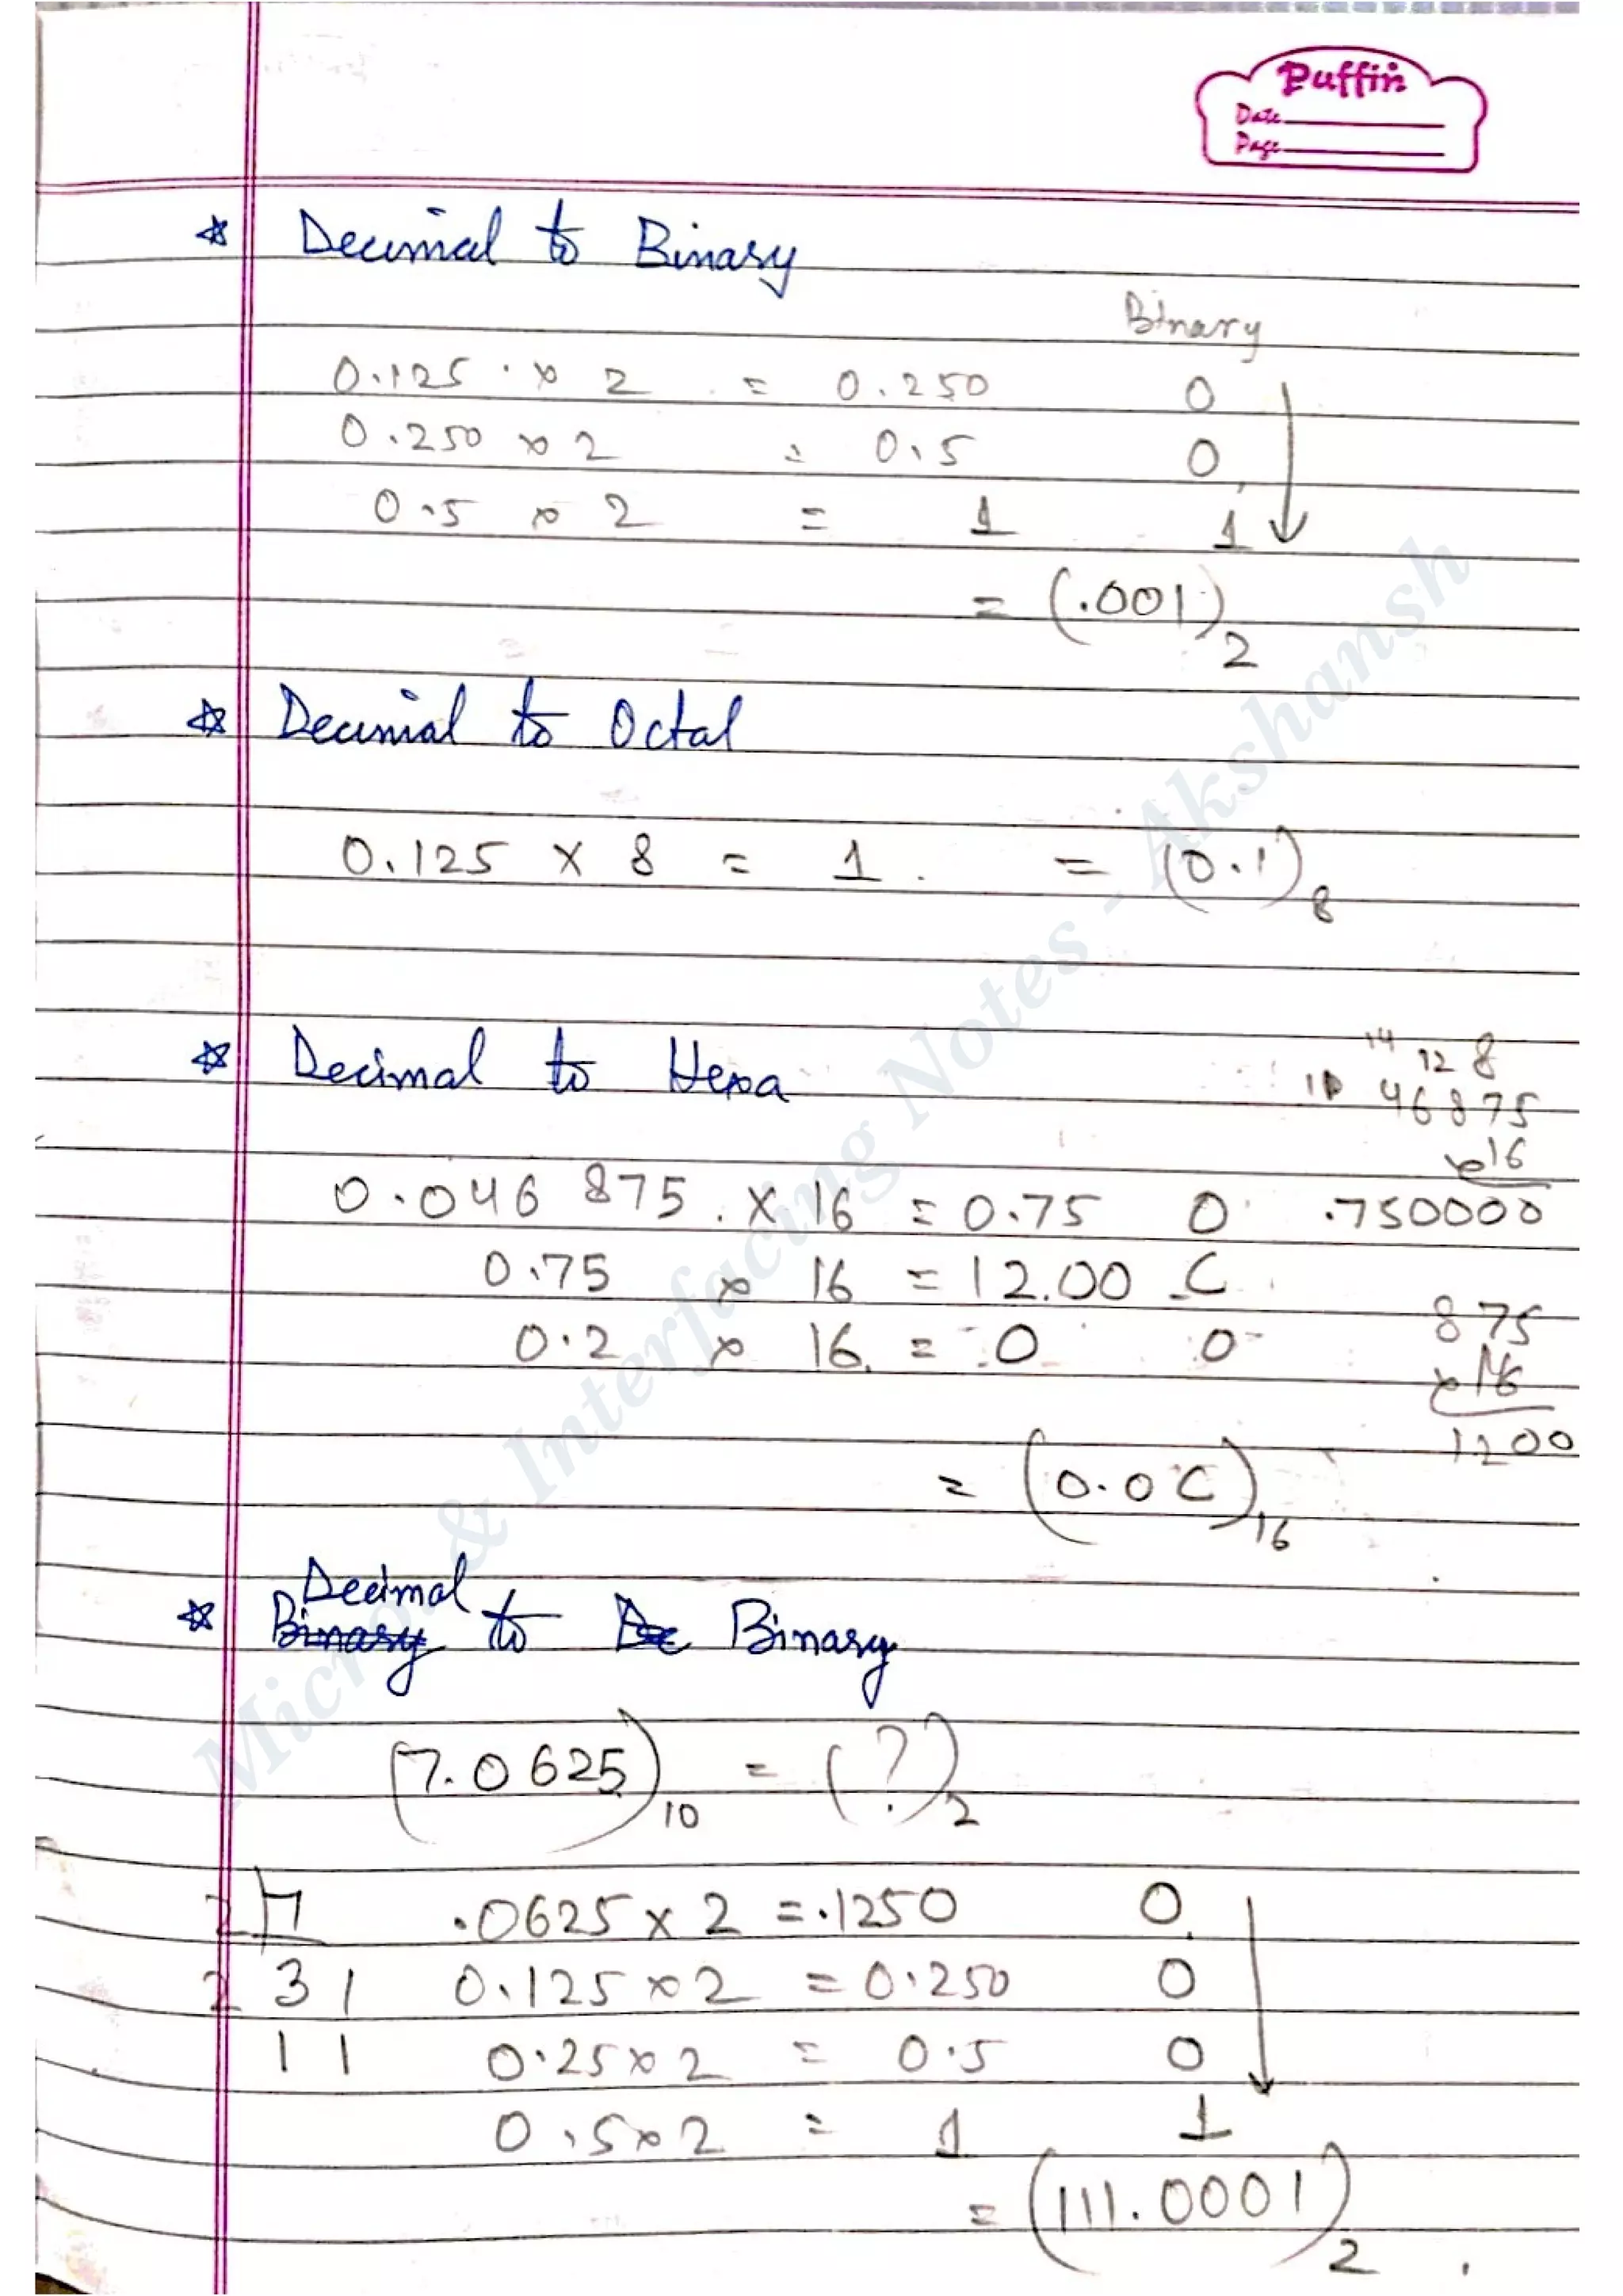 Puffin
Date
Page
☆ Decimal to Binary
Binary
0.125 × 2 = 0.250 0
0.250 × 2 = 0.5 0
0.5 × 2 = 1 1
= (.001)2
☆ Decimal to Octal
0.125 × 8 = 1 = (0.1)8
☆ Decimal to Hexa
14 12 8
46875
×16
0.046 875 × 16 = 0.75 0 .750000
0.75 × 16 = 12.00 C
0.2 × 16 = 0 0
875
×16
1200
= (0.0C)16
Decimal
☆ Binary to De Binary
(7.0625)10 = (?)2
2 7 .0625 × 2 = .1250 0
2 3 1 0.125 × 2 = 0.250 0
1 1 0.25 × 2 = 0.5 0
0.5 × 2 = 1 1
= (111.0001)2
Micro & Interfacing Notes - Akshansh